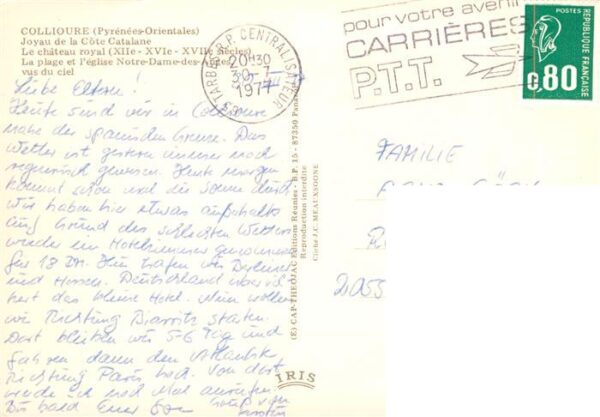 COLLIOURE (Pyrénées-Orientales)
Joyau de la Côte Catalane
Le château royal (XIIe - XVIe - XVIIe siècles)
La plage et l'église Notre-Dame-des-Anges
vus du ciel
Liebe Eltern!
Heute sind wir in Collioure
nahe der spanischen Grenze. Das
Wetter ist gestern immer noch
regnerisch gewesen. Heute morgen
kommt schon mal die Sonne durch
Wir haben hier etwas
auf Grund des schlechten Wetters
wieder im Hotelzimmer genommen
für 18 DM. Hier trafen wir Berliner
und Hessen. Deutschland
das kleine Hotel. Nun wollen
wir Richtung Biarritz starten.
Dort bleiben wir 5-6 Tage und
fahren dann den Atlantik
Richtung Paris hoch. Von dort
werde ich noch mal anrufen.
Bis bald Euer
(E) CAP-THEOJAC Editions Réunies - B.P. 15 - 87350 Panazol
Reproduction interdite
Cliché J.C. MEAUXSOONE
IRIS
TARBES R.P. CENTRALISATEUR
20H30
30-
1977
pour votre avenir
CARRIÈRES
P.T.T.
POSTES
0,80
REPUBLIQUE FRANÇAISE
FAMILIE
2053